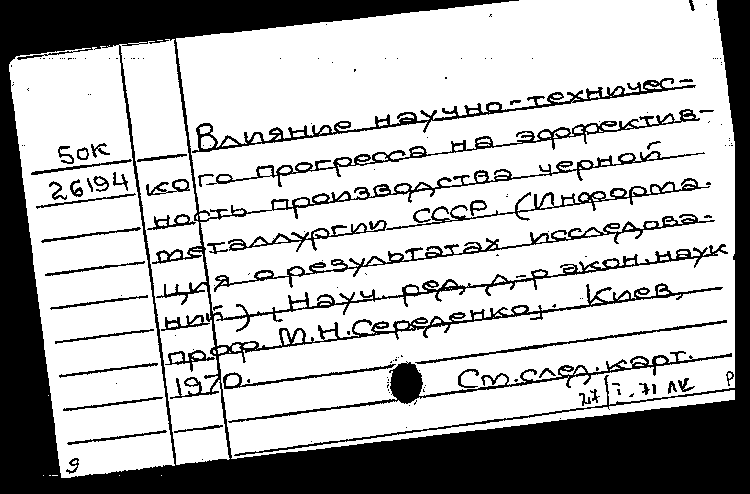 Влияние научно-техничес-
50к
26194
кого прогресса на эффектив-
ность производства черной
металлургии СССР. (Информа-
ция о результатах исследова-
ний). [Науч. ред. д-р экон. наук
проф. М.Н.Середенко]. Киев,
1970.
См.след.карт.
71 лк
9